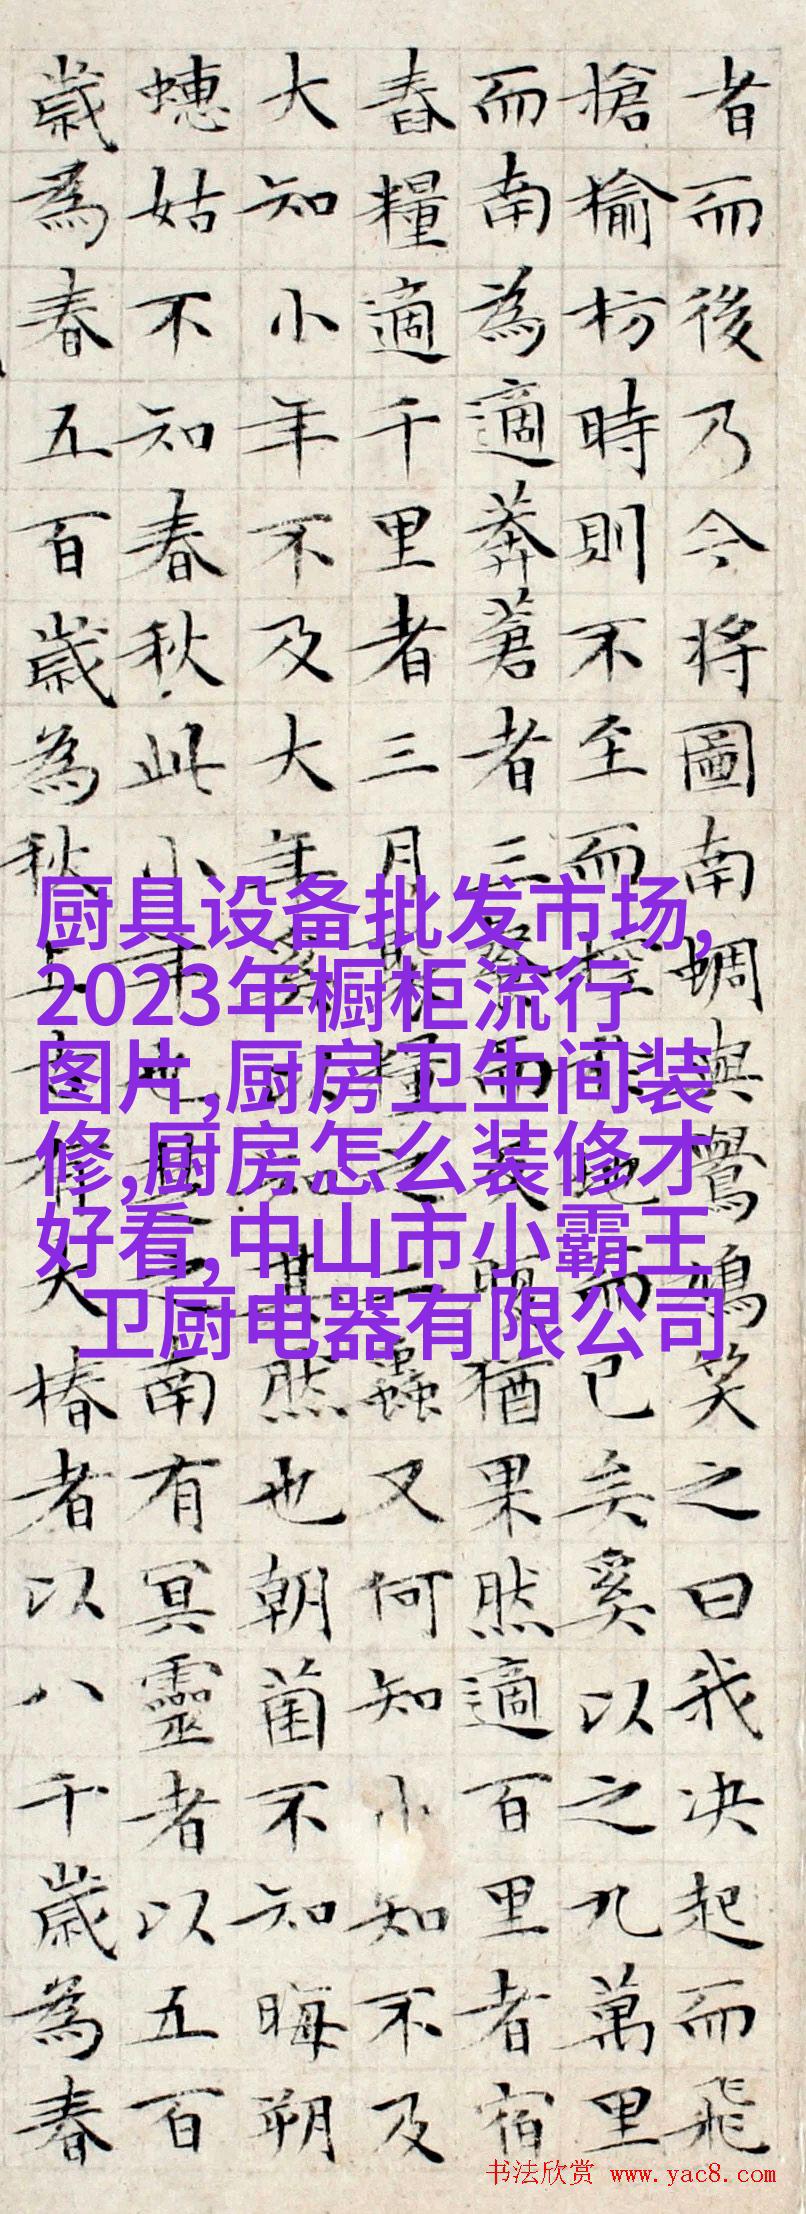 者而後乃今将圖南蜩與鷽鳩笑之曰我决起而飛
槍榆枋時則不至而控於地而已矣奚以之九萬里
而南為適莽蒼者三飡而反腹猶果然適百里者宿
舂糧適千里者三月聚糧之二蟲又何知小知不及
大知小年不及大年奚以知其然也朝菌不知晦朔
蟪姑不知春秋此小年也楚之南有冥靈者以五百
歲為春五百歲為秋上古有大椿者以八千歲為春
厨具设备批发市场,
2023年橱柜流行
图片,厨房卫生间装
修,厨房怎么装修才
好看,中山市小霸王
卫厨电器有限公司
书法欣赏 www.yac8.com